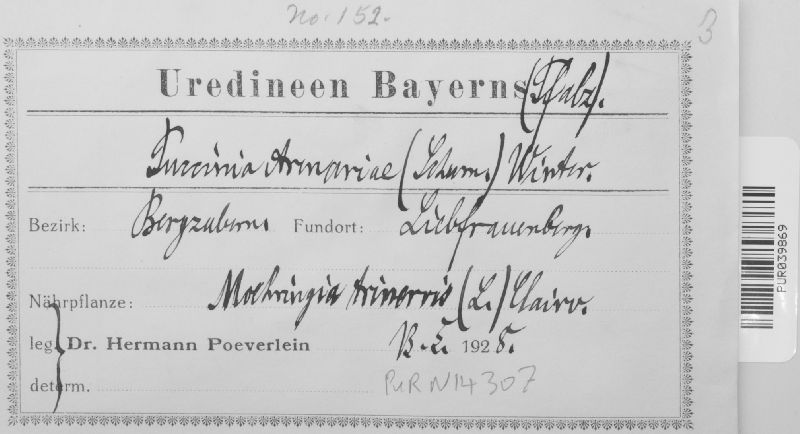 No. 152.
3
Uredineen Bayerns (Pfalz).
Puccinia Arenariae (Schum.) Winter.
Bezirk: Bergzabern. Fundort: Liebfrauenberg.
Nährpflanze: Moehringia trinervis (L.) Clairv.
leg. Dr. Hermann Poeverlein 1928.
determ. PUR N14307
PUR039869